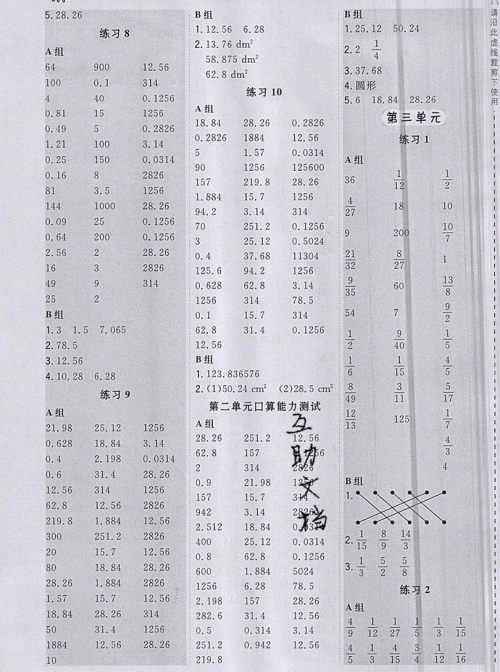 5. 28.26
练习 8
A 组
64 900 12.56
100 0.1 314
4 40 0.1256
0.81 15 1256
0.49 5 0.2826
1.21 100 3.14
0.25 150 0.0314
0.16 8 2826
81 3.5 1256
144 1000 28.26
0.09 25 0.1256
0.64 200 0.1256
2.56 2 28.26
16 3 2826
49 9 314
25 2
B 组
1. 3 1.5 7.065
2. 78.5
3. 12.56
4. 10.28 6.28
练习 9
A 组
21.98 25.12 1256
0.628 18.84 3.14
0.4 2.198 0.0314
0.6 31.4 28.26
12.56 314 1256
62.8 12.56 2826
219.8 1.884 12.56
300 251.2 2826
20 15.7 12.56
80 18.84 28.26
28.26 1.884 2826
1.57 15.7 12.56
18.84 28.26 314
50 31.4 1256
1884 12.56 28.26
10
B 组
1. 12.56 6.28
2. 13.76 dm²
58.875 dm²
62.8 dm²
练习 10
A 组
18.84 28.26 0.2826
0.2826 1884 12.56
5 1.57 0.0314
90 1256 125600
157 219.8 28.26
1.884 15.7 1256
94.2 3.14 314
70 251.2 0.1256
3 25.12 0.5024
0.4 37.68 11304
125.6 94.2 1256
0.628 62.8 3.14
1256 314 78.5
0.1 15.7 314
62.8 31.4 0.1256
12.56
B 组
1. 123.836576
2. (1)50.24 cm² (2)28.5 cm²
第二单元口算能力测试
A 组
28.26 251.2 12.56
62.8 157
2 314 2826
0.9 21.98
157 15.7
942 3.14
2.512 18.84
400 25.12 0.0314
0.8 62.8 0.1256
600 1.884 5024
1256 6.28 78.5
2.198 157 28.26
282.6 31.4 12.56
0.5 0.314 3.14
251.2 0.942 12.56
219.8
互助文档
B 组
1. 25.12 50.24
2. 2 1/4
3. 37.68
4. 圆形
5. 6 18.84 28.26
第三单元
练习 1
A 组
36 1/12 1/2
4/27 18 10
9 200 10/7
21/32 8/27 1
9/35 60 13/8
54 7 9/2
1/2 9/40 1/5
1/6 1/15 4/5
8/49 3/11 5/17
12/13 125 1/7
4/3
4
B 组
1.
2. 1/15 8/9 14/3
3. 1/3 5/2 5/8
练习 2
A 组
4/9 1/12 1/27 1/5 1/3 1/15
4/5 2/15 4/15 3/4 1/12 1/16
请沿此虚线裁剪下使用